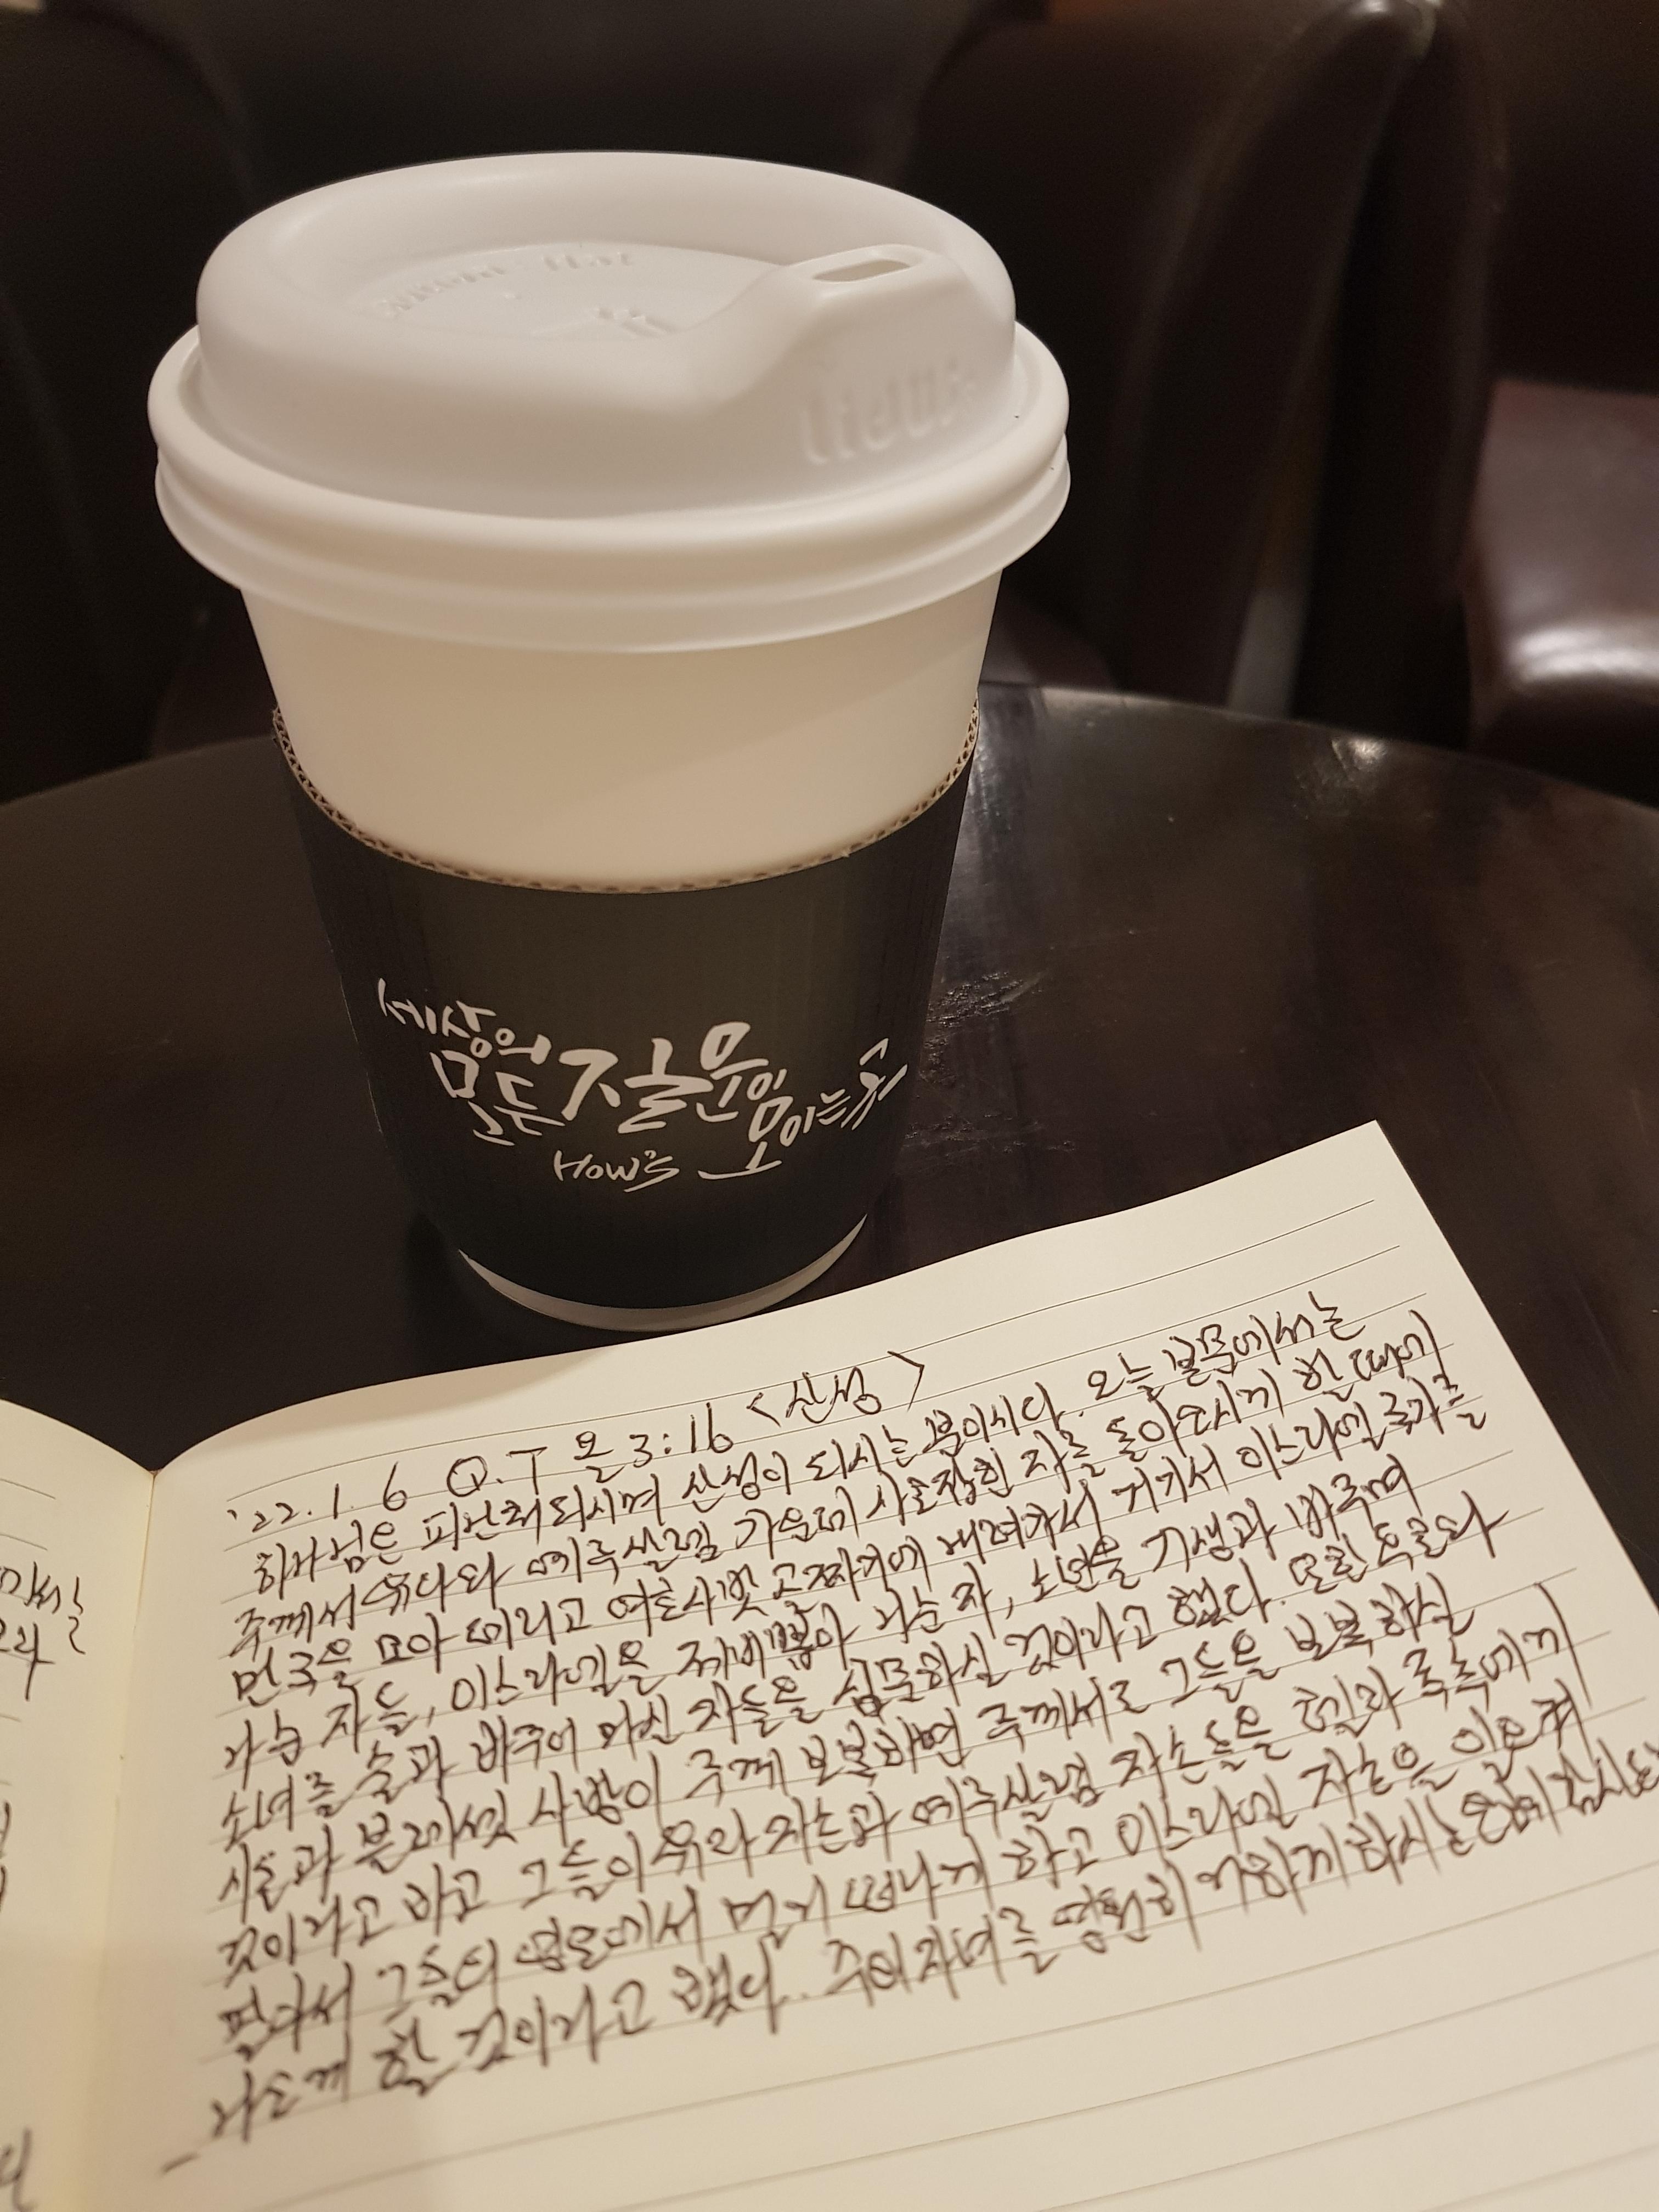 세상의
모든 질문이
모이는 곳
How's
'22. 1. 6 Q.T 욜 3:16 <산성>
하나님은 피난처 되시며 산성이 되시는 분이시다. 오늘 본문에서는
주께서 유다와 예루살렘 가운데 사로잡힌 자를 돌아오시게 한 때에
만국을 모아 데리고 여호사밧 골짜기에 내려가서 거기서 이스라엘 국가를
나눈 자들, 이스라엘을 제비뽑아 나눈 자, 소년을 기생과 바꾸며
소녀를 술과 바꾸어 마신 자들을 심문하실 것이라고 했다. 또한 두로와
시돈과 블레셋 사방이 주께 보복하면 주께서로 그들을 보복하실
것이라고 하고 그들이 유다 자손과 예루살렘 자손들을 헬라 족속에게
팔아서 그들의 영토에서 멀리 떠나게 하고 이스라엘 자손을
나오게 할 것이라고 했다. 주의 자녀를 영원히 거하게 하시는